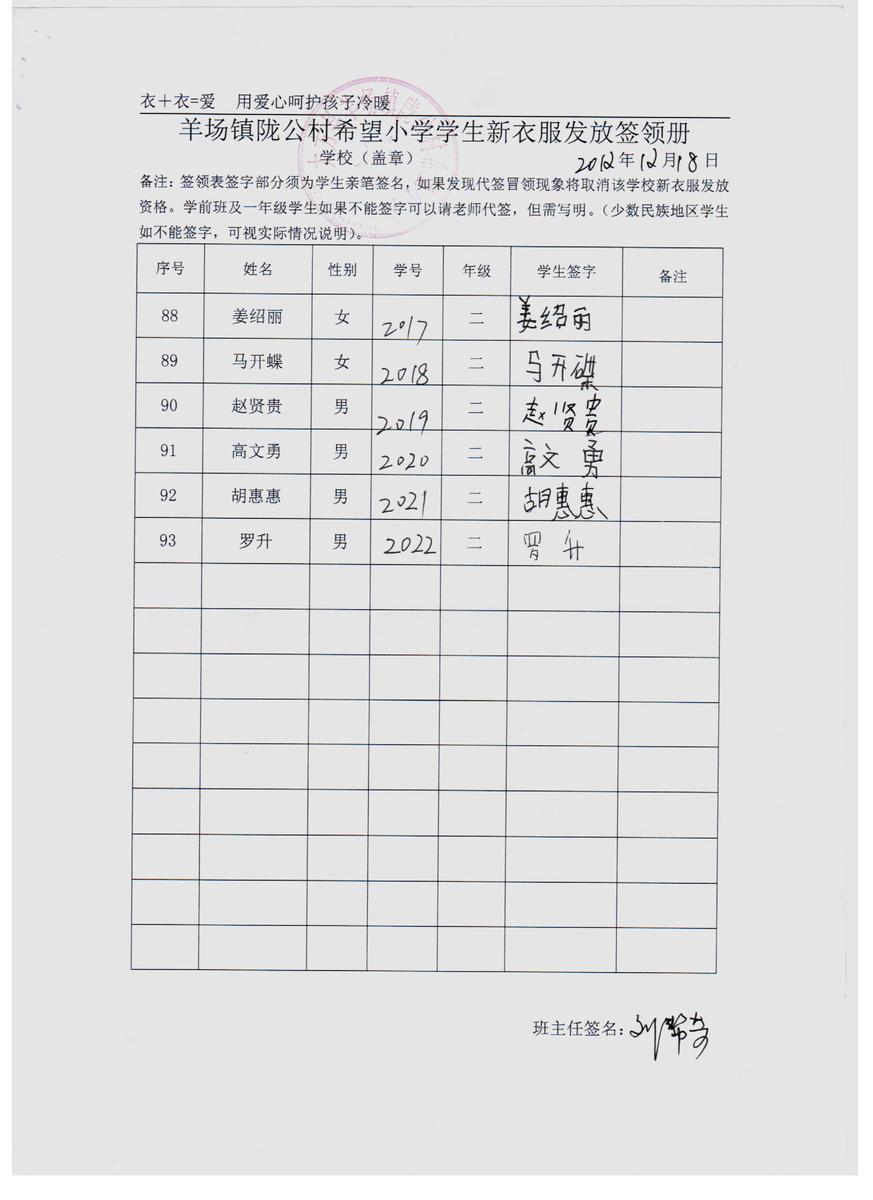 衣＋衣=爱 用爱心呵护孩子冷暖
羊场镇陇公村希望小学学生新衣服发放签领册
学校（盖章） 2012年12月18日
备注：签领表签字部分须为学生亲笔签名，如果发现代签冒领现象将取消该学校新衣服发放
资格。学前班及一年级学生如果不能签字可以请老师代签，但需写明。（少数民族地区学生
如不能签字，可视实际情况说明）。
序号 姓名 性别 学号 年级 学生签字 备注
88 姜绍丽 女 2017 二 姜绍丽
89 马开蝶 女 2018 二 马开碟
90 赵贤贵 男 2019 二 赵贤贵
91 高文勇 男 2020 二 高文勇
92 胡惠惠 男 2021 二 胡惠惠
93 罗升 男 2022 二 罗升
班主任签名：